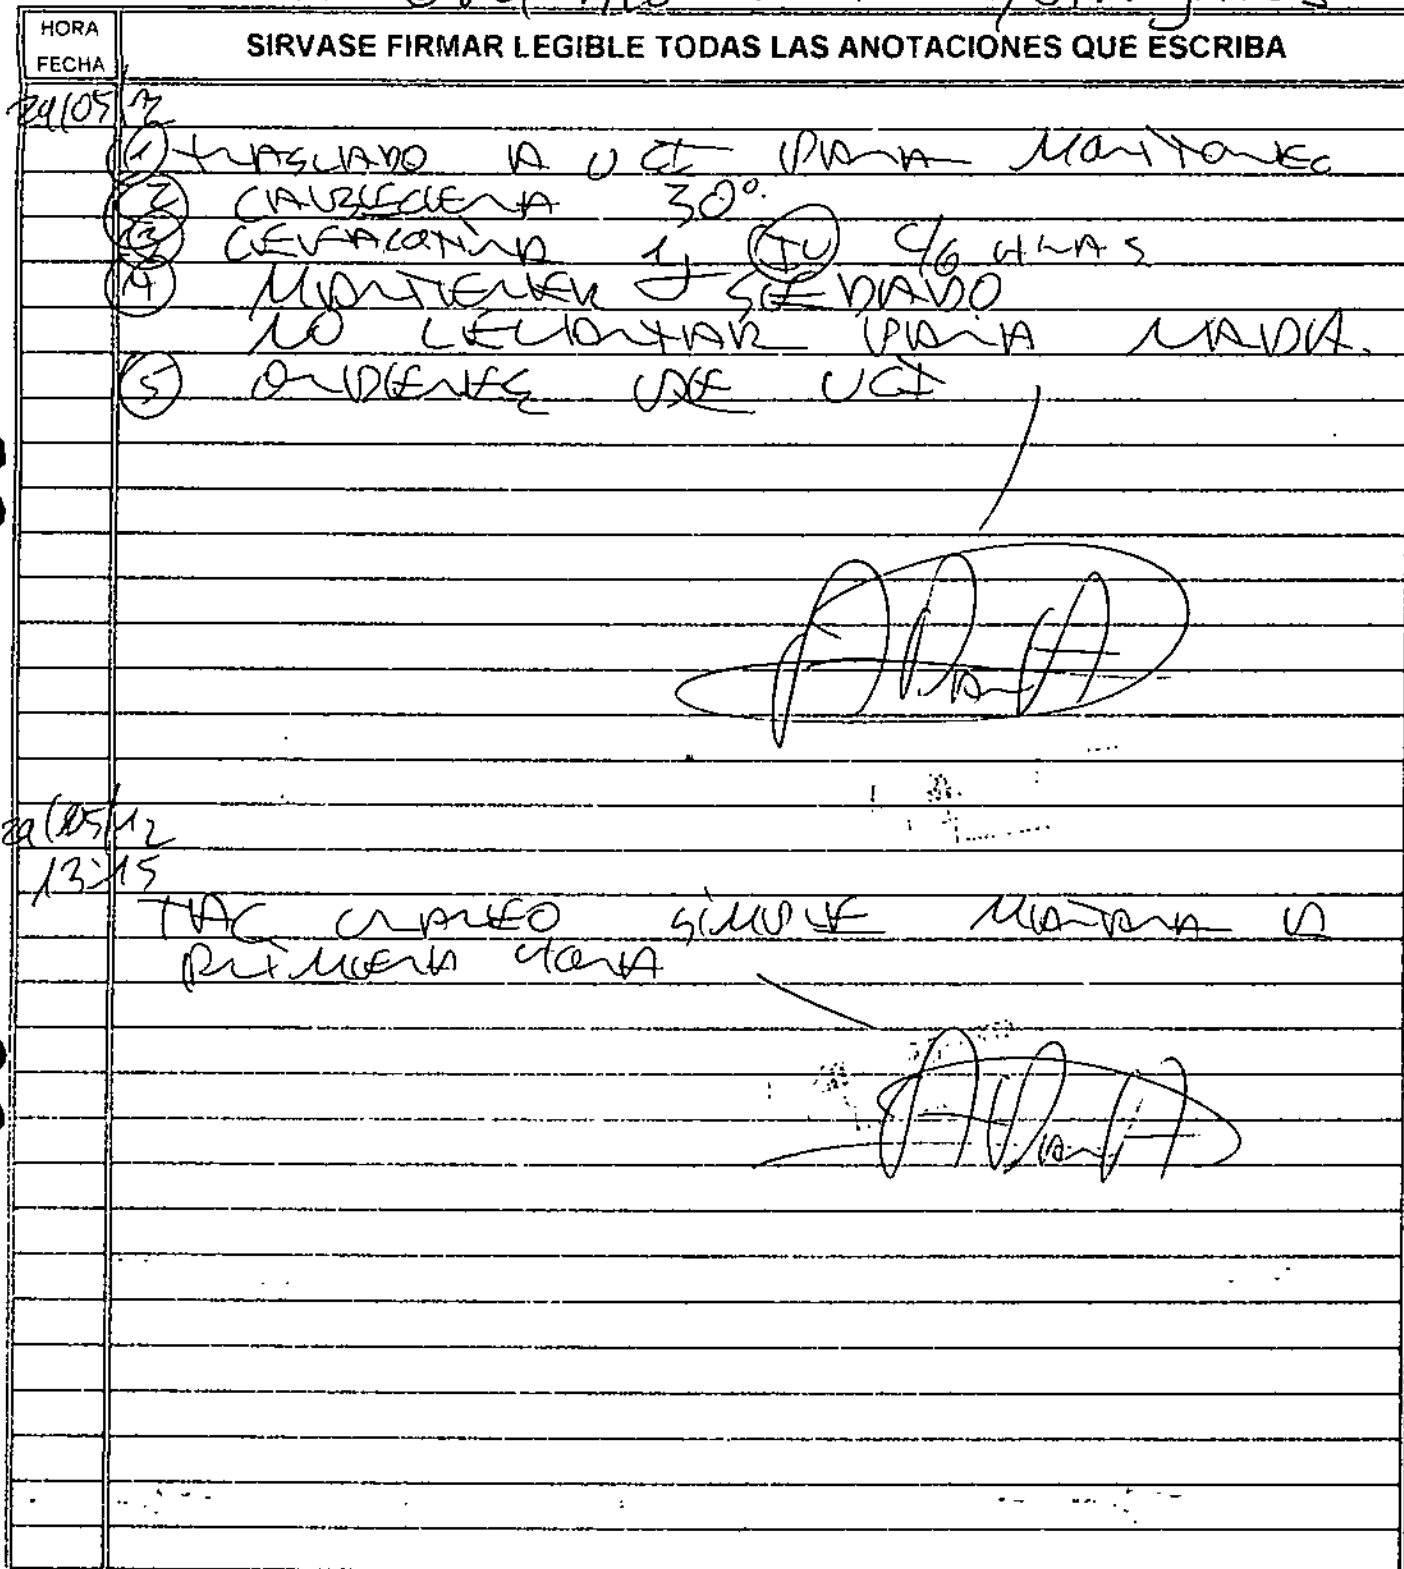 HORA
FECHA
SIRVASE FIRMAR LEGIBLE TODAS LAS ANOTACIONES QUE ESCRIBA
29/05/12
① TRASLADO A UCI PARA MONITOREO
② CABECERA 30°.
③ CEFALOTINA 1g IV C/6 HRAS
④ MANTENER SEDADO
NO LEVANTAR PARA NADA.
⑤ ORDENES DE UCI
29/05/12
13:15
TAC CRANEO SIMPLE MAÑANA A
PRIMERA HORA